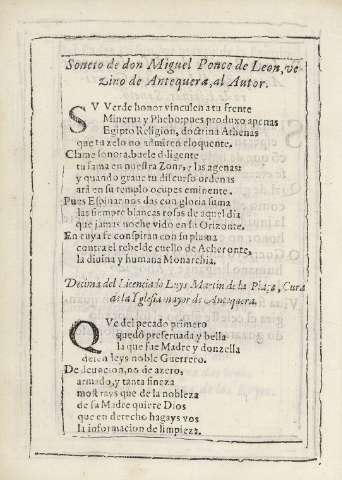 Soneto de don Miguel Ponce de Leon, ve
zino de Antequera, al Autor.
SV Verde honor vinculen a tu frente
Minerua y Phebo: pues produxo apenas
Egipto Religion, doctrina Athenas
que tu zelo no admiren eloquente.
Clame sonora, buele diligente
tu fama en nuestra Zona, y las agenas:
y quando graue tu discurso ordenas
ará en su templo ocupes eminente.
Pues Espinar nos das con gloria suma
las siempre blancas rosas de aquel dia
que jamas noche vido en su Orizonte.
En cuya fe conspiran con su pluma
contra el rebelde cuello de Acheronte,
la diuina y humana Monarchia.
Decima del Licenciado Luys Martin de la Plaça, Cura
de la Yglesia mayor de Antequera.
QVe del pecado primero
quedó preseruada y bella
la que fue Madre y donzella
defendeys noble Guerrero.
De deuocion, no de azero,
armado, y tanta fineza
mostrays que de la nobleza
de su Madre quiere Dios
que en derecho hagays vos
la informacion de limpieza.